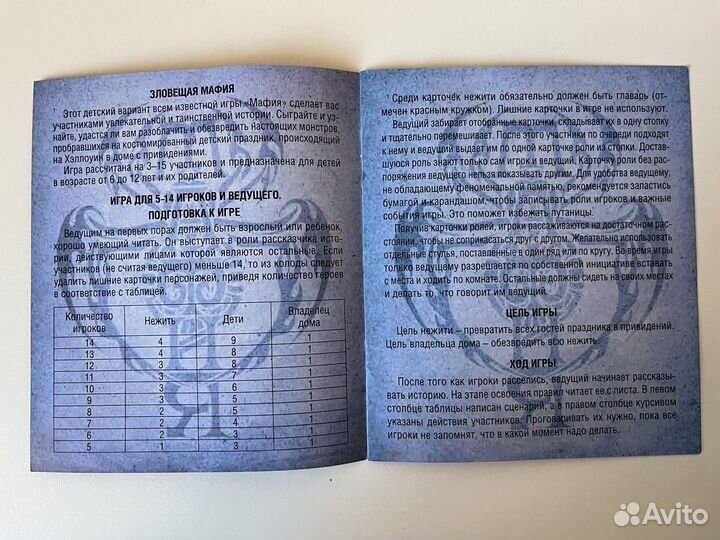 ЗЛОВЕЩАЯ МАФИЯ
Этот детский вариант всем известной игры «Мафия» сделает вас
участниками увлекательной и таинственной истории. Сыграйте и уз-
найте, удастся ли вам разоблачить и обезвредить Настоящих монстров,
пробравшихся на костюмированный детский праздник, происходящий
на Хэллоуин в доме с привидениями.
Игра рассчитана на 3–15 участников и предназначена для детей
в возрасте от 6 до 12 лет и их родителей.
ИГРА ДЛЯ 5-14 ИГРОКОВ И ВЕДУЩЕГО.
ПОДГОТОВКА К ИГРЕ
Ведущим на первых порах должен быть взрослый или ребенок,
хорошо умеющий читать. Он выступает в роли рассказчика исто-
рии, действующими лицами которой являются остальные. Если
участников (не считая ведущего) меньше 14, то из колоды следует
удалить лишние карточки персонажей, приведя количество героев
в соответствие с таблицей.
Количество игроков Нежить Дети Владелец дома
14 4 9 1
13 4 8 1
12 3 8 1
11 3 7 1
10 3 6 1
9 3 5 1
8 2 5 1
7 2 4 1
6 2 3 1
5 1 3 1
Среди карточек нежити обязательно должен быть главарь (от-
мечен красным кружком). Лишние карточки в игре не используют.
Ведущий забирает отобранные карточки, складывает их в одну стопку
и тщательно перемешивает. После этого участники по очереди подходят
к нему и ведущий выдает им по одной карточке роли из стопки. Доставшуюся
роль знают только сам игрок и ведущий. Карточку роли без рас-
поряжения ведущего нельзя показывать другим. Для удобства ведущему,
не обладающему феноменальной памятью, рекомендуется запастись
бумагой и карандашом, чтобы записывать роли игроков и важные
события игры. Это поможет избежать путаницы.
Получив карточки ролей, игроки рассаживаются на достаточном рас-
стоянии, чтобы не соприкасаться друг с другом. Желательно использовать
отдельные стулья, поставленные в один ряд или по кругу. Во время игры
только ведущему разрешается по собственной инициативе вставать
с места и ходить по комнате. Остальные должны сидеть на своих местах
и делать то, что говорит им ведущий.
ЦЕЛЬ ИГРЫ
Цель нежити – превратить всех гостей праздника в привидений.
Цель владельца дома – обезвредить всю нежить.
ХОД ИГРЫ
После того как игроки расселись, ведущий начинает рассказы-
вать историю. На этапе освоения правил читает ее с листа. В левом
столбце таблицы написан сценарий, а в правом столбце курсивом
указаны действия участников. Проговаривать их нужно, пока все
игроки не запомнят, что в какой момент надо делать.
Avito